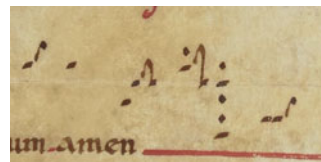 um amen